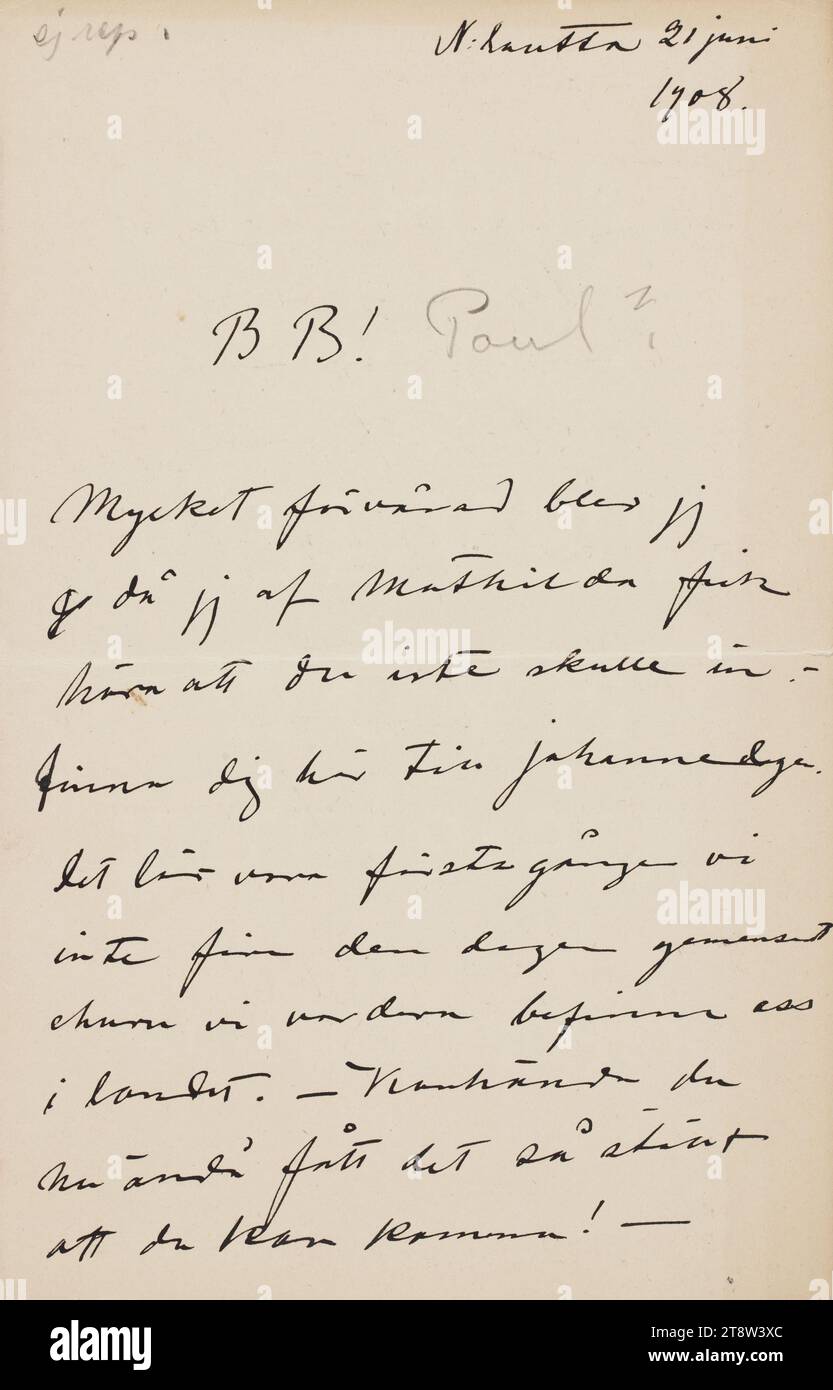 ej rep.
N:lautta 21 juni
1908.
BB! Paul?
Mycket förvånad blev jg
då jg af Mathilda fick
höra att du inte skulle in-
finna dig här till johannedagen.
det lär vara första gången vi
inte fira den dagen gemensamt
ehuru vi vardera befinna oss
i landet. – Kanhända du
nu ändå fått det så ställt
att du kan komma! —
alamy
Image ID: 2T8W3XC
www.alamy.com